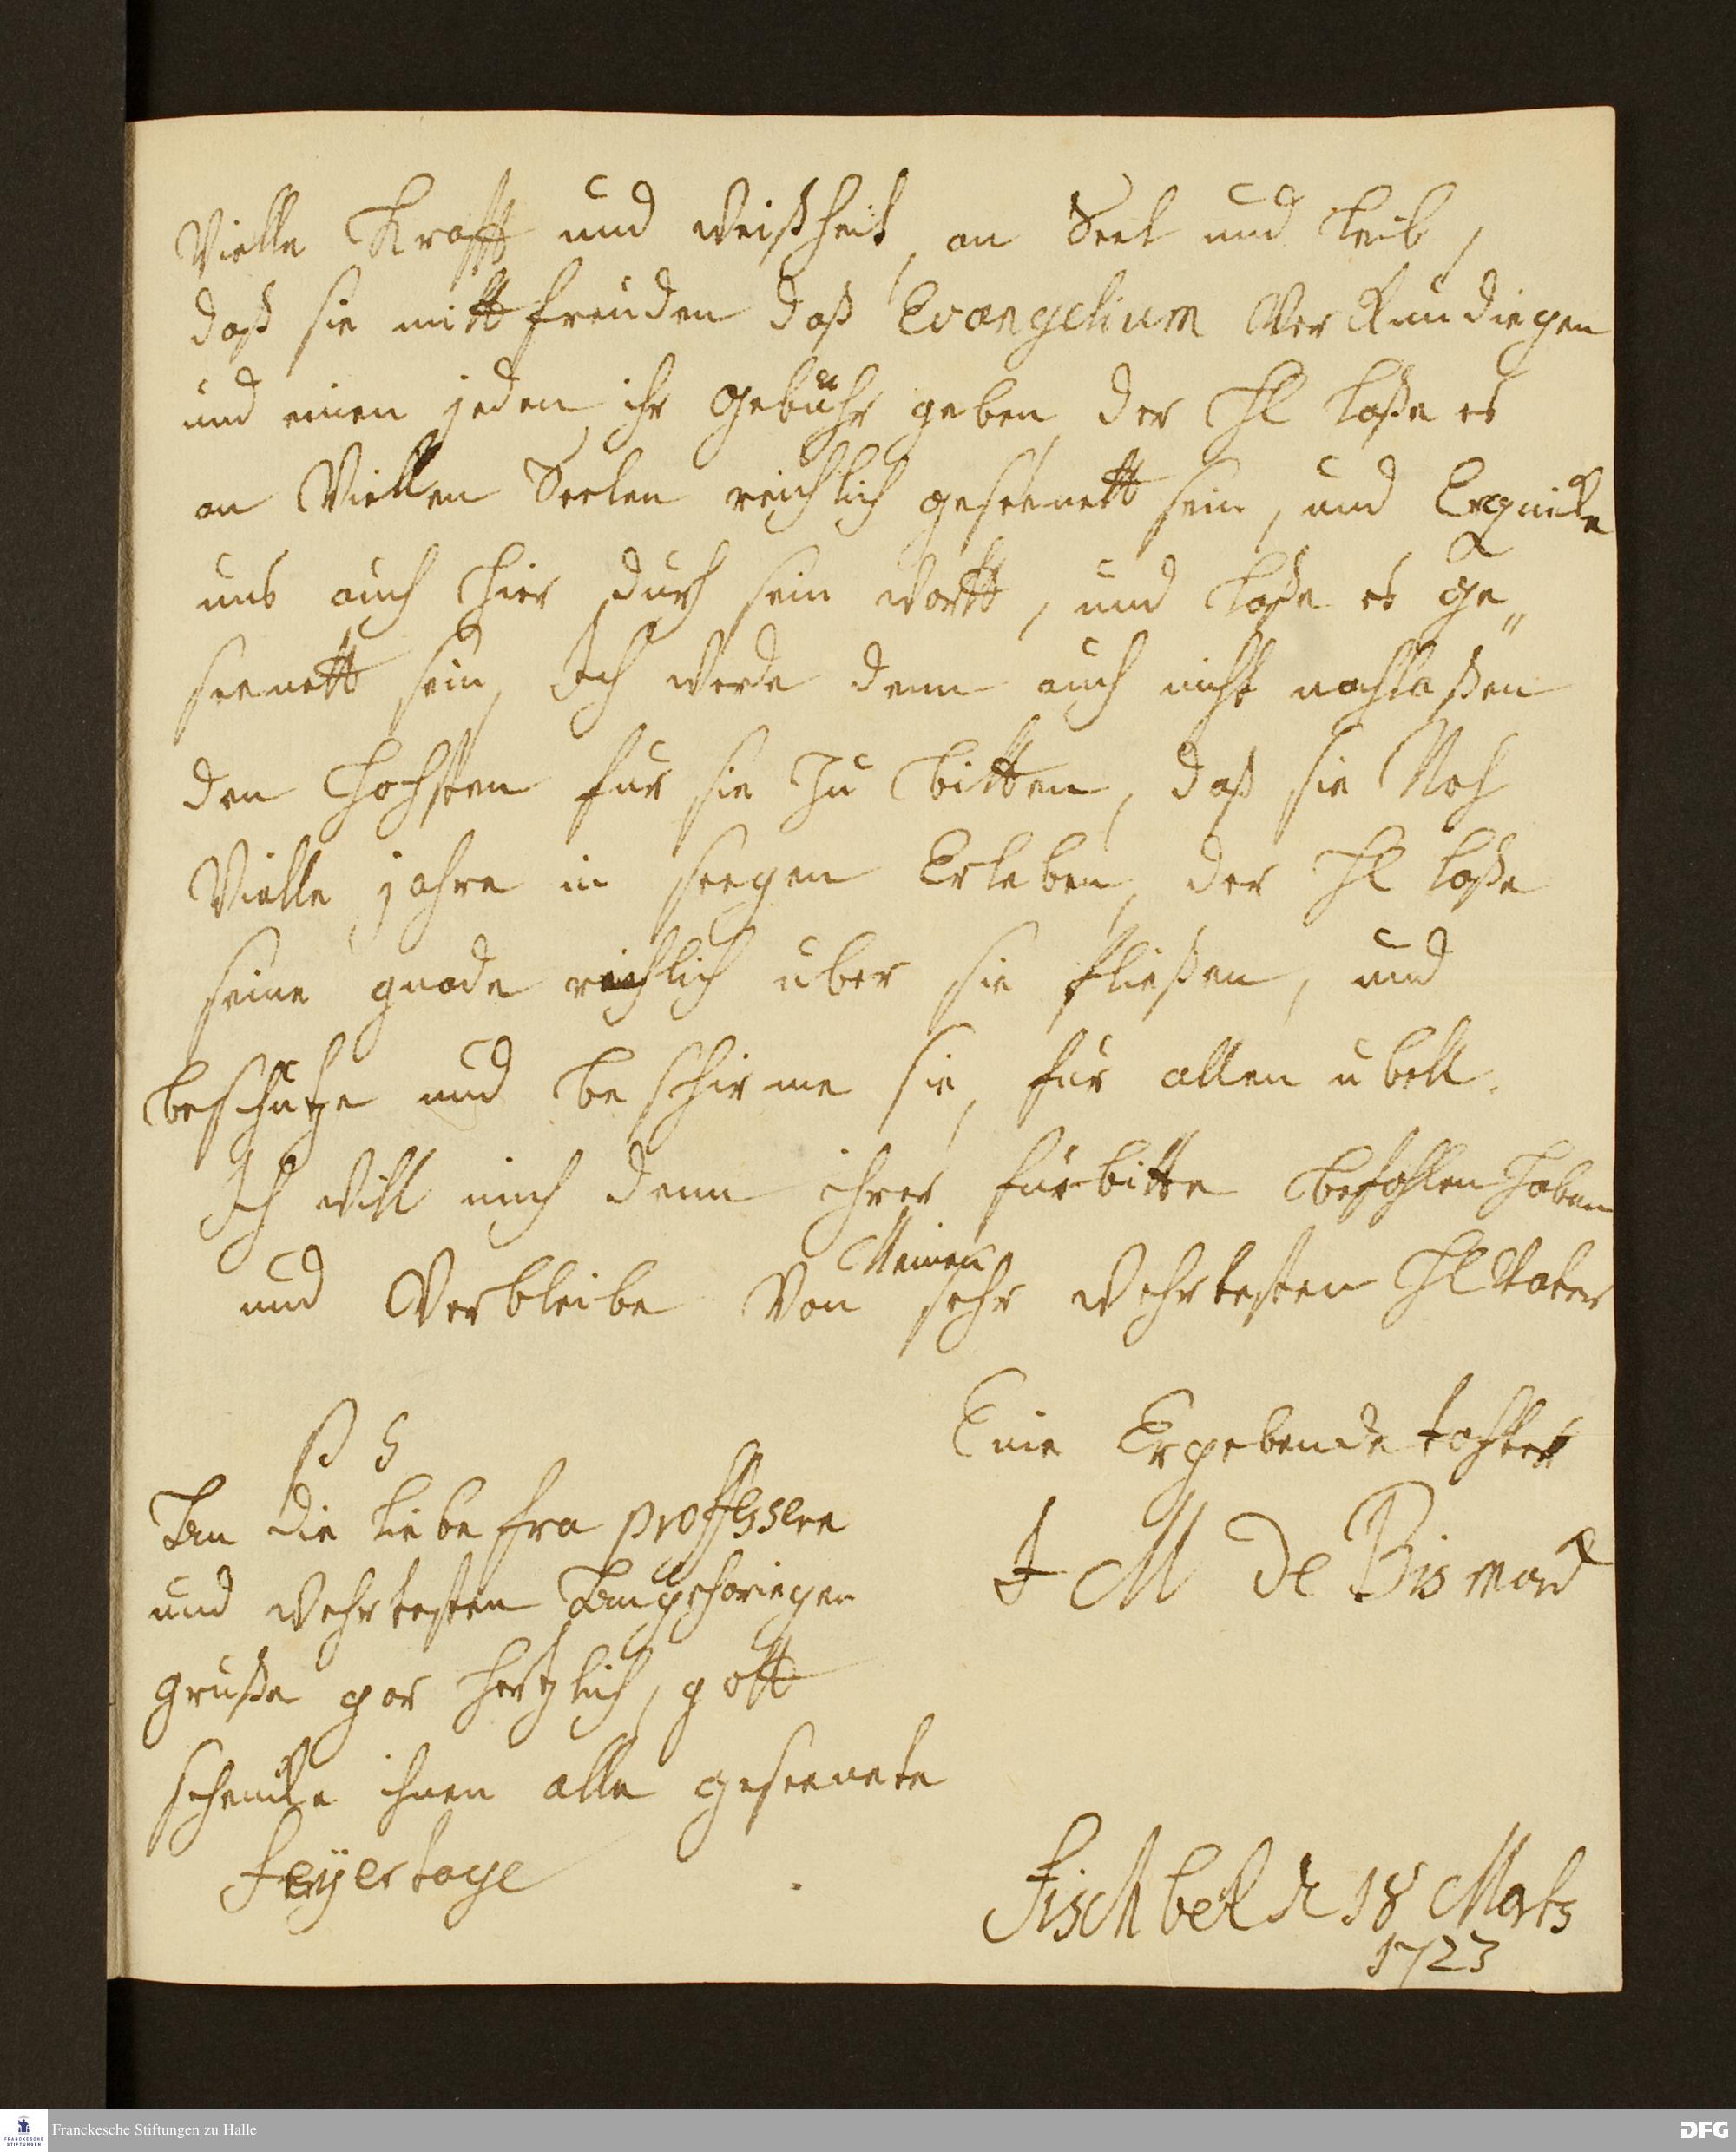 Vielle Krafft und Weißheit, an Seel und Leib,
daß sie mitt freuden daß Evangelium Verkündiegen
und einen jeden ihr gebühr geben, der Hl laße es
an Viellen Seelen reichlich geseenett sein, und Erquicke
uns auch hier durch sein Wortt, und laße es ge„
seenett sein, Ich werde denn auch nicht nachlaßen
den Hochsten fur sie zu bitten, daß sie Noch
Vielle jahre in seegen Erleben, der Hl laße
seine gnade reichlich uber sie fließen, und
beschutze und beschirme sie, fur allen ubell.
Ich Will mich denn ihrer furbitte befohlen haben
und Verbleibe Von Meinen sehr Wehrtesten Hl Vater
Eine Ergebende tochter
J M De Bismarck
P S
An die liebe fra proffessern
und Wehrtesten Angehoriegen
gruße gar hertzlich, gott
schencke ihnen alle geseenete
Feÿertage
Fischbek d 18 Martz
1723
Franckesche Stiftungen zu Halle
FRANCKESCHE
STIFTUNGEN
DFG